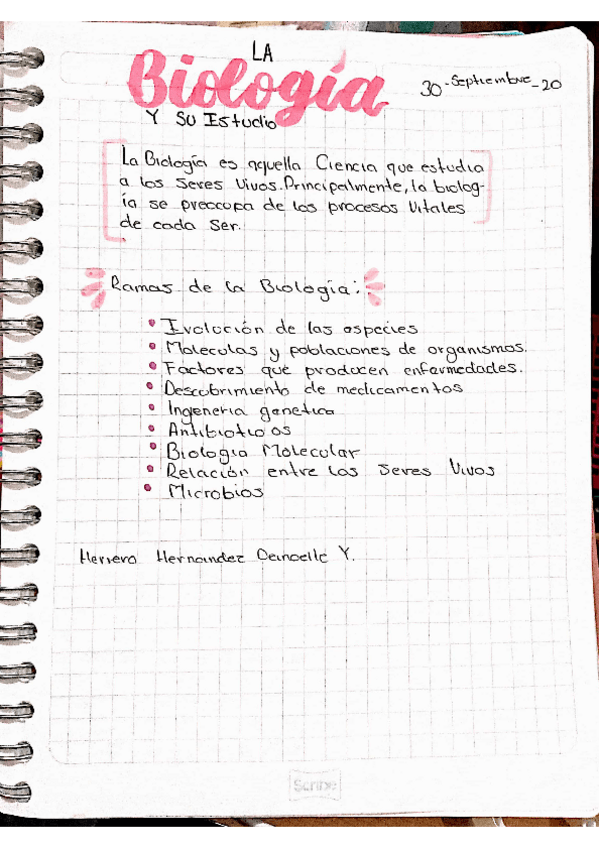 LA
Biología
30-Septiembre-20
Y su Estudio
La Biología es aquella Ciencia que estudia
a los seres vivos. Principalmente, la biolog-
ía se preocupa de los procesos vitales
de cada ser.
Ramas de la Biología:
• Evolución de las especies
• Moleculas y poblaciones de organismos.
• Factores que producen enfermedades.
• Descubrimiento de medicamentos
• Ingeneria genetica
• Antibioticos
• Biologia Molecular
• Relación entre los seres vivos
• Microbios
Herrera Hernandez Y.
Scribe